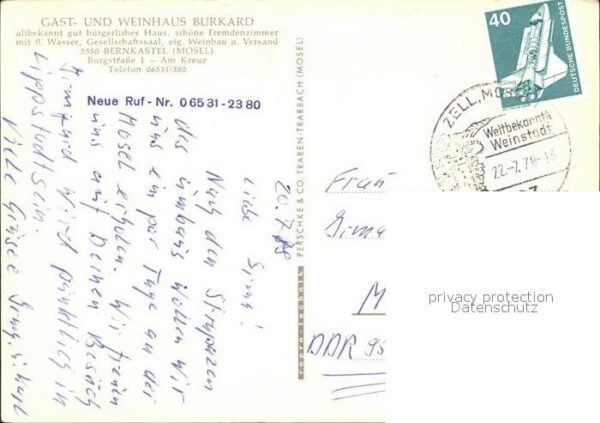 GAST- UND WEINHAUS BURKARD
altbekannt gut bürgerliches Haus, schöne Fremdenzimmer
mit fl. Wasser, Gesellschaftssaal, eig. Weinbau u. Versand
5550 BERNKASTEL (MOSEL)
Burgstraße 1 – Am Kreuz
Telefon 06531/380
Neue Ruf-Nr. 06531-2380
20.7.78
Liebe Irma!
Nach den Strapazen
des Umbaus wollen wir
uns ein par Tage an der
Mosel erholen. Wir freuen
uns auf Deinen Besuch
Irmgard wird pünktlich in
Lippstadt sein.
Viele Grüsse
PERSCHKE & CO. TRABEN-TRARBACH (MOSEL)
40
DEUTSCHE BUNDESPOST
ZELL, MOSEL
Weltbekannte
Weinstadt
22.-7.78-13
Frau
Irma
M
DDR 95
privacy protection
Datenschutz